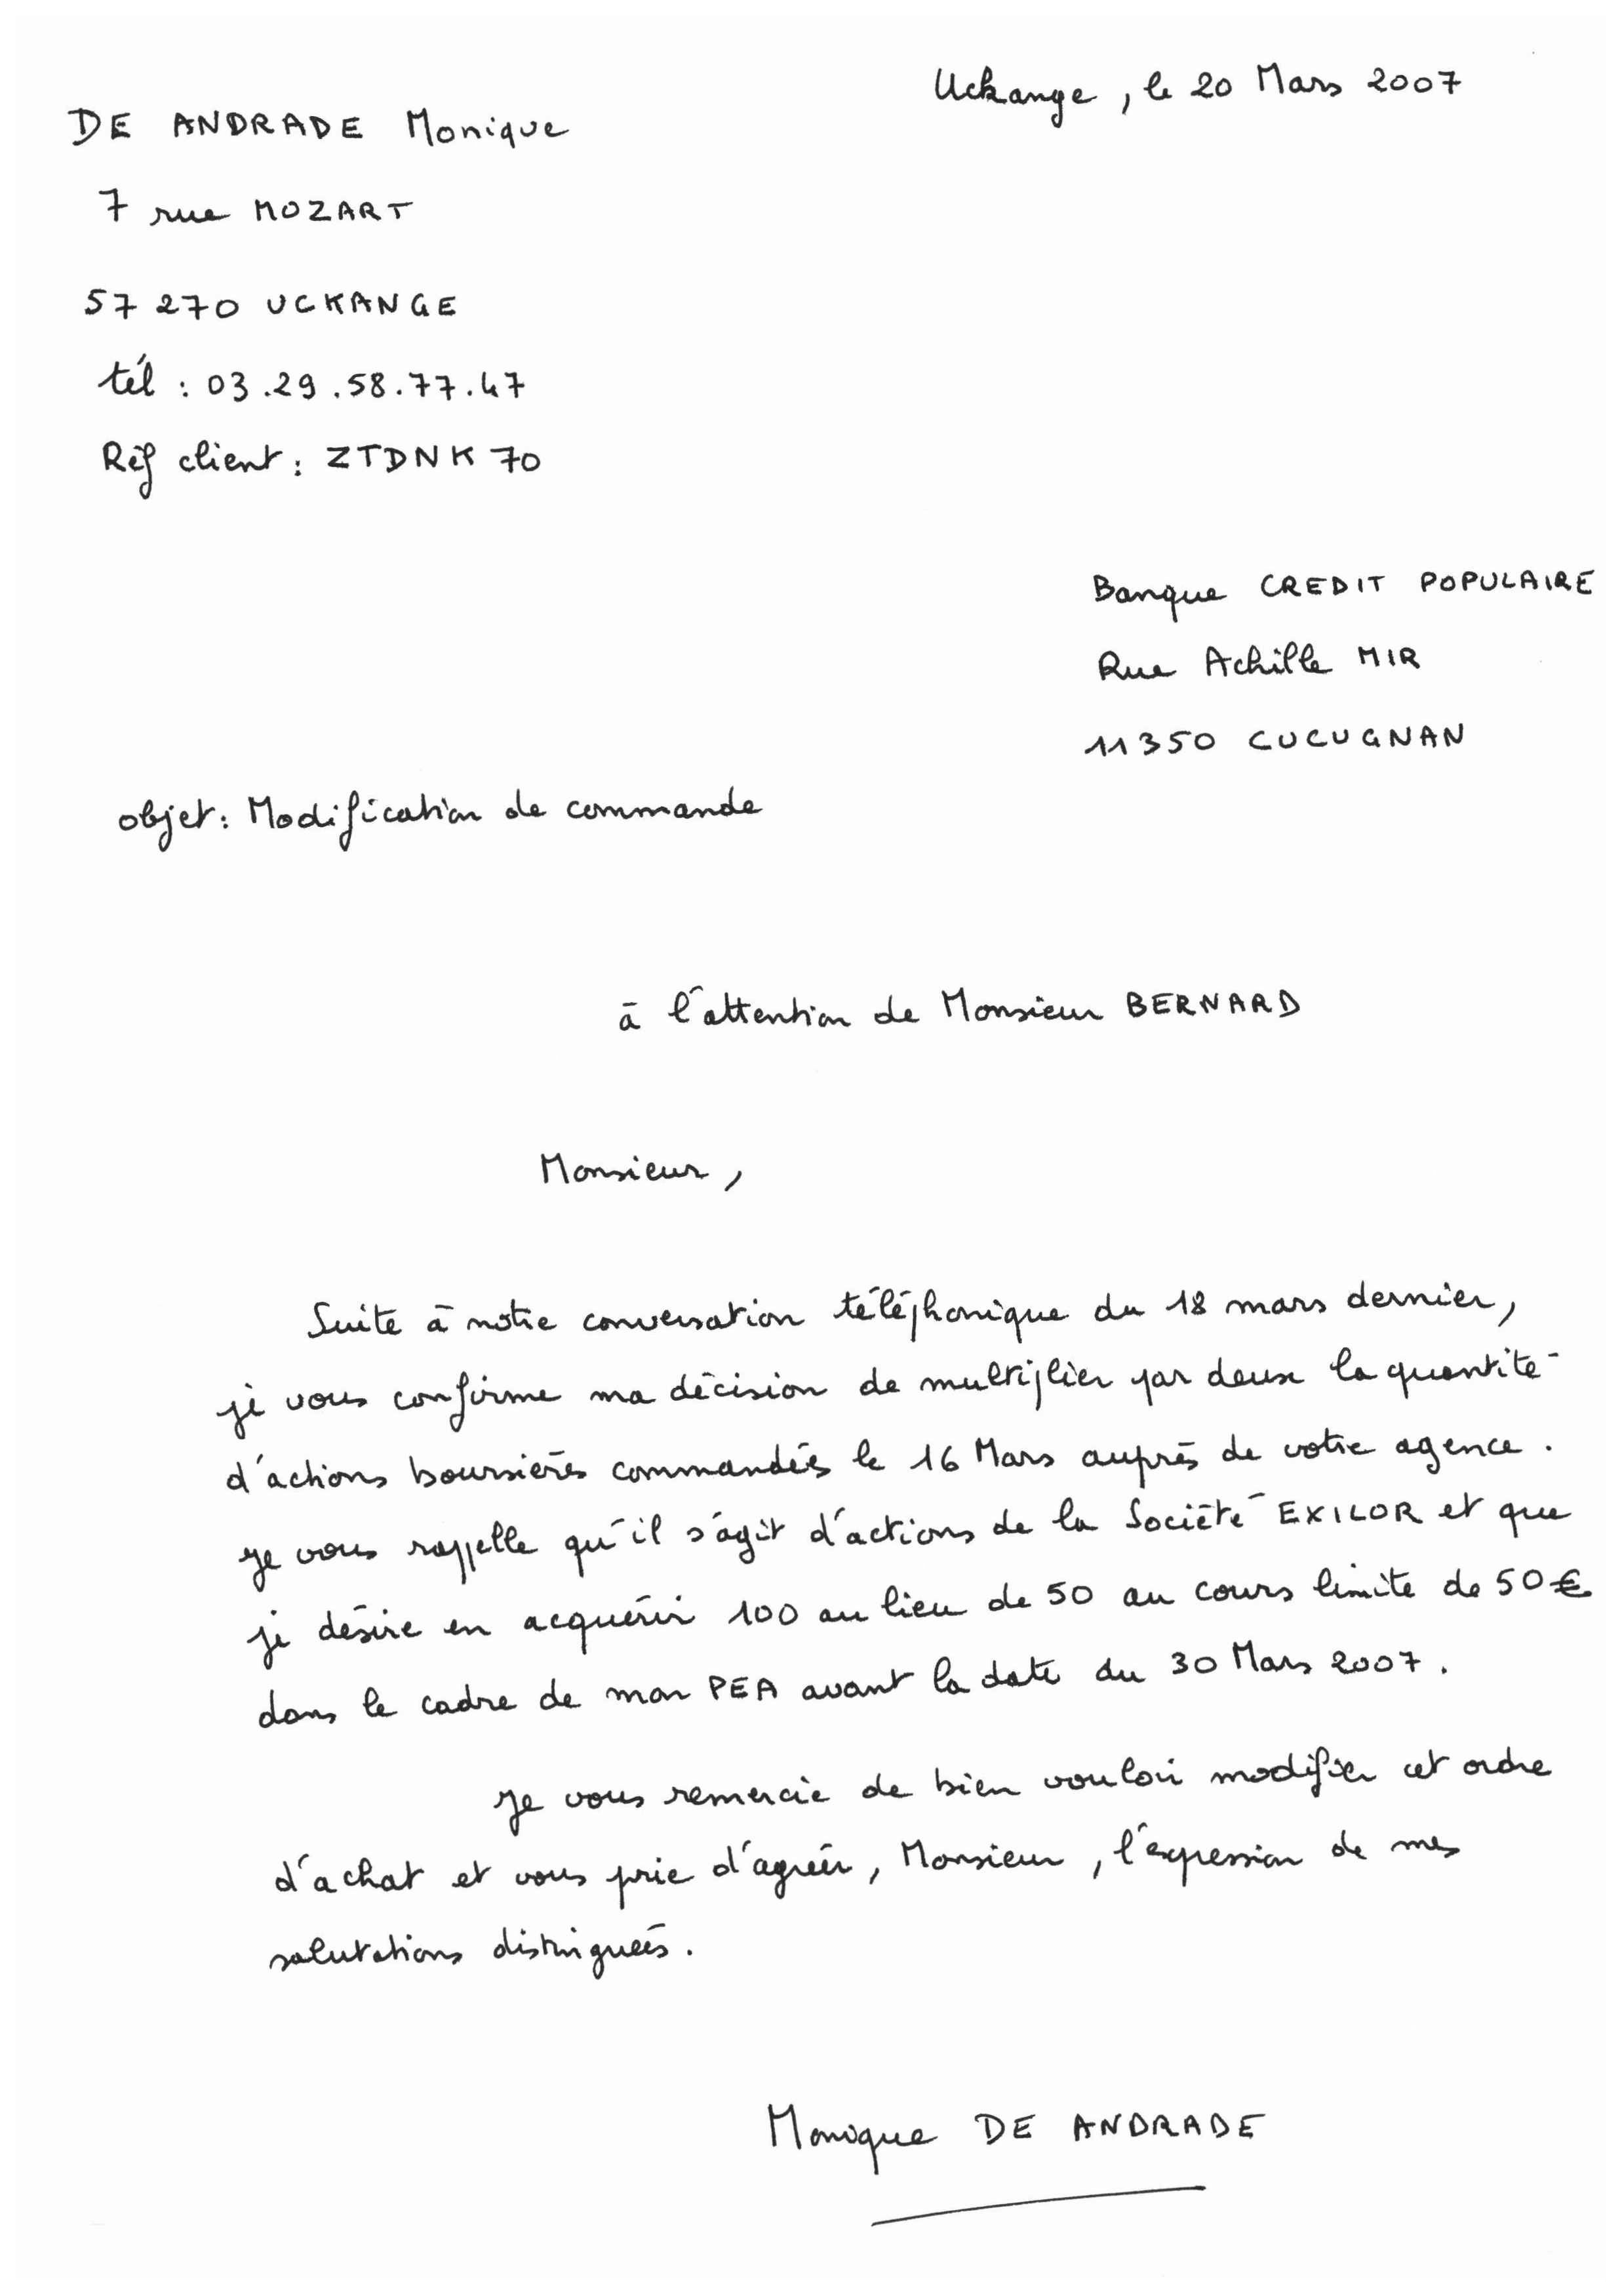 Uckange, le 20 Mars 2007
DE ANDRADE Monique
7 rue MOZART
57 270 UCKANGE
tél : 03.29.58.77.47
Réf client : ZTDNK 70
Banque CREDIT POPULAIRE
Rue Achille MIR
11350 CUCUGNAN
objet : Modification de commande
à l'attention de Monsieur BERNARD
Monsieur,
Suite à notre conversation téléphonique du 18 mars dernier,
je vous confirme ma décision de multiplier par deux la quantité
d'actions boursières commandées le 16 Mars auprès de votre agence.
Je vous rappelle qu'il s'agit d'actions de la Société EXILOR et que
je désire en acquérir 100 au lieu de 50 au cours limite de 50€
dans le cadre de mon PEA avant la date du 30 Mars 2007.
Je vous remercie de bien vouloir modifier cet ordre
d'achat et vous prie d'agréer, Monsieur, l'expression de mes
salutations distinguées.
Monique DE ANDRADE